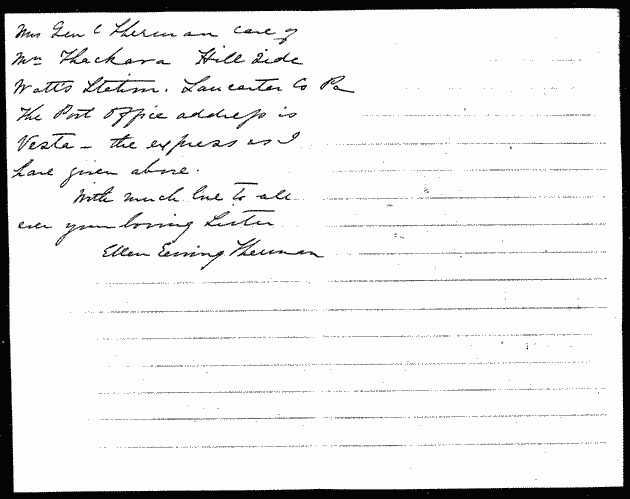 Mrs Gen C Sherman care of
Mrs Thackara Hill Side
Watt's Station. Lancaster Co Pa
The Post Office address is
Vesta — the express as I
have given above.
With much love to all
ever your loving Sister
Ellen Ewing Sherman